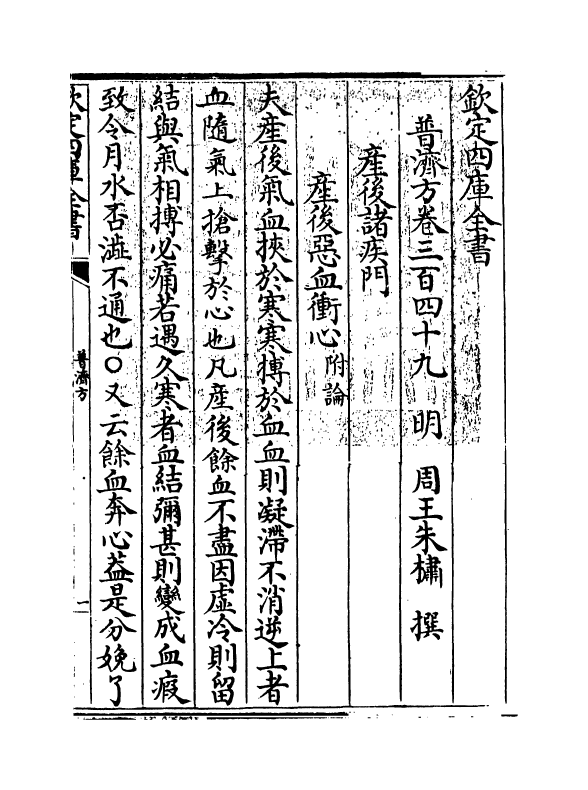 欽定四庫全書
普濟方卷三百四十九 明 周王朱橚 撰
產後諸疾門
產後惡血衝心附論
夫產後氣血挾於寒寒搏於血血則凝滯不消逆上者
血隨氣上搶擊於心也凡產後餘血不盡因虛冷則留
結與氣相搏必痛若遇久寒者血結彌甚則變成血瘕
致令月水否澁不通也○又云餘血奔心葢是分娩了
欽定四庫全書
普濟方
一